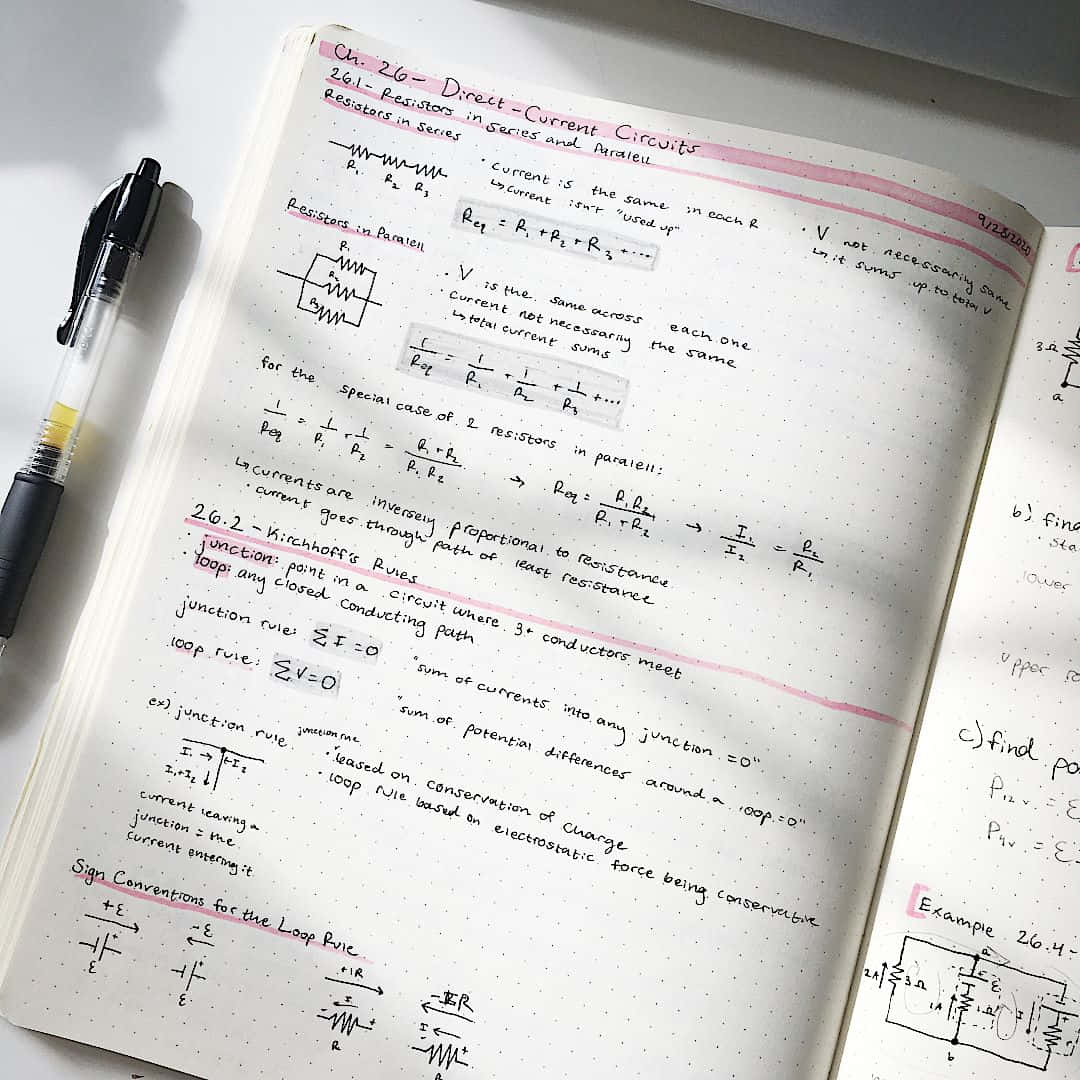 Ch. 26 - Direct-Current Circuits
9/28/2020
26.1 - Resistors in Series and Paralell
Resistors in Series
R₁ R₂ R₃
· current is the same in each R
↳ current isn't "used up"
Req = R₁ + R₂ + R₃ + ...
· V not necessarily same
↳ it sums up to total V
Resistors in Paralell
R₁
R₂
R₃
· V is the same across each one
· current not necessarily the same
↳ total current sums
1/Req = 1/R₁ + 1/R₂ + 1/R₃ + ...
for the special case of 2 resistors in paralell:
1/Req = 1/R₁ + 1/R₂ = R₁+R₂/R₁R₂ → Req = R₁R₂/R₁+R₂ → I₁/I₂ = R₂/R₁
↳ currents are inversely proportional to resistance
· current goes through path of least resistance
26.2 - Kirchhoff's Rules
· junction: point in a circuit where 3+ conductors meet
· loop: any closed conducting path
junction rule: ΣI = 0 "sum of currents into any junction = 0"
loop rule: ΣV = 0 "sum of potential differences around a loop = 0"
ex) junction rule
I₁ → ← I₂
I₁+I₂ ↓
current leaving a
junction = the
current entering it
· based on conservation of charge
· loop rule based on electrostatic force being conservative
Sign Conventions for the Loop Rule
+Ɛ
+
Ɛ
-Ɛ
+
Ɛ
+IR
I
+
R
-IR
I
+
R
3Ω
a
b) find
lower
upper
c) find po
P₁₂ᵥ. = Ɛ
P₄ᵥ. = Ɛ
Example 26.4-
a
2A 3Ω
1A 1Ω
Ɛ
I
+
b